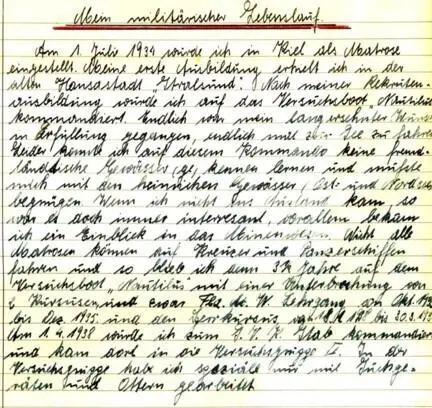 Mein militärischer Lebenslauf.
Am 1. Juli 1934 wurde ich in Kiel als Matrose
eingestellt. Meine erste Ausbildung erhielt ich in der
alten Hansastadt Stralsund. Nach meiner Rekruten-
ausbildung wurde ich auf das Versuchsboot „Nautilus"
kommandiert. Endlich war mein langersehnter Wunsch
in erfüllung gegangen, endlich mal zur See zu fahren.
Leider konnte ich auf diesem Kommando keine fremd-
ländische Gewässer kennen lernen und mußte
mich mit den heimischen Gewässer, Ost- und Nordsee
begnügen. Wenn ich nicht ins Ausland kam, so
war es doch immer interesant, vorallem bekam
ich ein Einblick in das Minenwesen. Nicht alle
Matrosen können auf Kreuzer und Panzerschiffen
fahren und so blieb ich denn 3¾ Jahre auf dem
Versuchsboot „Nautilus" mit einer Unterbrechung von
2 Kursusen und zwar Lehrgang am Okt.
bis Dez. 1935. und den
Am 1.4.1938 wurde ich zum S.V.K. Stab kommandiert
und kam dort in die Versuchsgruppe II. In der
Versuchsgruppe habe ich speziäle nur mit Suchge-
räten und Ottern gearbeitet